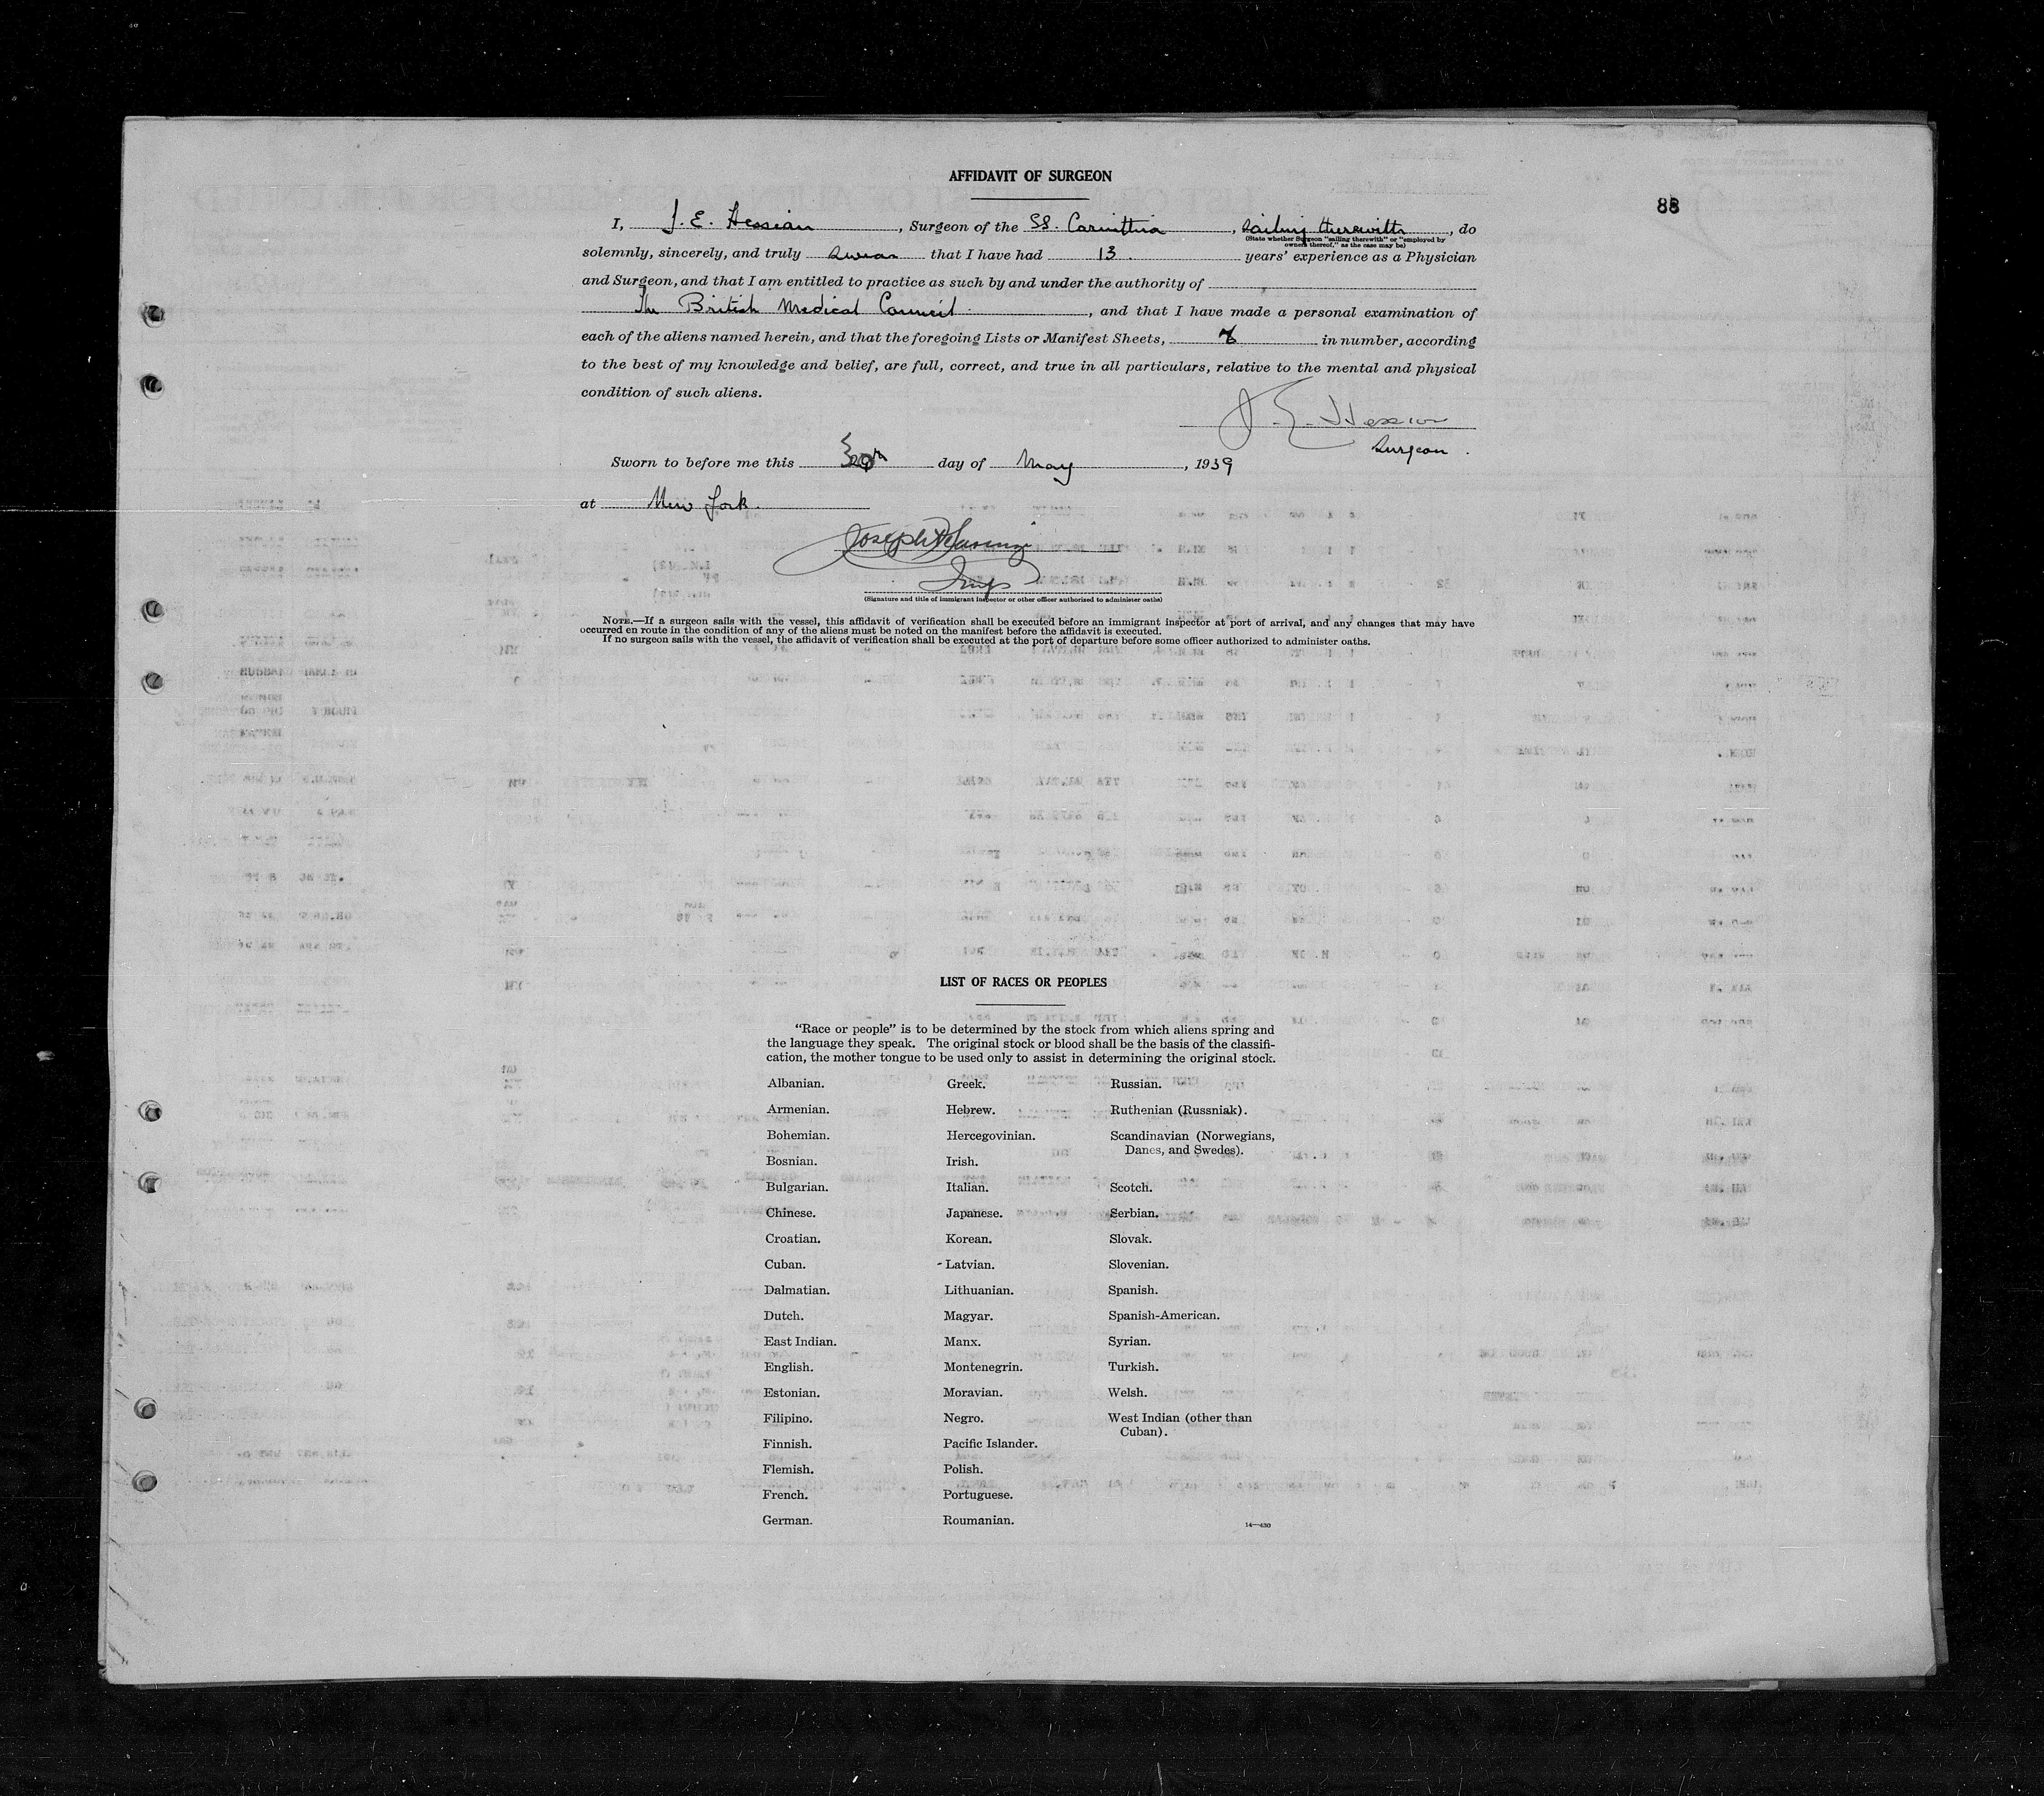 AFFIDAVIT OF SURGEON
88
I, J. E. Hession, Surgeon of the SS. Carinthia, sailing therewith, do
(State whether Surgeon "sailing therewith" or "employed by
owners thereof," as the case may be)
solemnly, sincerely, and truly swear that I have had 13 years' experience as a Physician
and Surgeon, and that I am entitled to practice as such by and under the authority of
The British Medical Council, and that I have made a personal examination of
each of the aliens named herein, and that the foregoing Lists or Manifest Sheets, in number, according
to the best of my knowledge and belief, are full, correct, and true in all particulars, relative to the mental and physical
condition of such aliens.
J. E. Hession
Surgeon.
Sworn to before me this day of May, 1939
at New York.
Joseph
Insp
(Signature and title of immigrant inspector or other officer authorized to administer oaths)
NOTE.—If a surgeon sails with the vessel, this affidavit of verification shall be executed before an immigrant inspector at port of arrival, and any changes that may have
occurred en route in the condition of any of the aliens must be noted on the manifest before the affidavit is executed.
If no surgeon sails with the vessel, the affidavit of verification shall be executed at the port of departure before some officer authorized to administer oaths.
LIST OF RACES OR PEOPLES
"Race or people" is to be determined by the stock from which aliens spring and
the language they speak. The original stock or blood shall be the basis of the classifi-
cation, the mother tongue to be used only to assist in determining the original stock.
Albanian.
Armenian.
Bohemian.
Bosnian.
Bulgarian.
Chinese.
Croatian.
Cuban.
Dalmatian.
Dutch.
East Indian.
English.
Estonian.
Filipino.
Finnish.
Flemish.
French.
German.
Greek.
Hebrew.
Hercegovinian.
Irish.
Italian.
Japanese.
Korean.
Latvian.
Lithuanian.
Magyar.
Manx.
Montenegrin.
Moravian.
Negro.
Pacific Islander.
Polish.
Portuguese.
Roumanian.
Russian.
Ruthenian (Russniak).
Scandinavian (Norwegians,
Danes, and Swedes).
Scotch.
Serbian.
Slovak.
Slovenian.
Spanish.
Spanish-American.
Syrian.
Turkish.
Welsh.
West Indian (other than
Cuban).
14—430